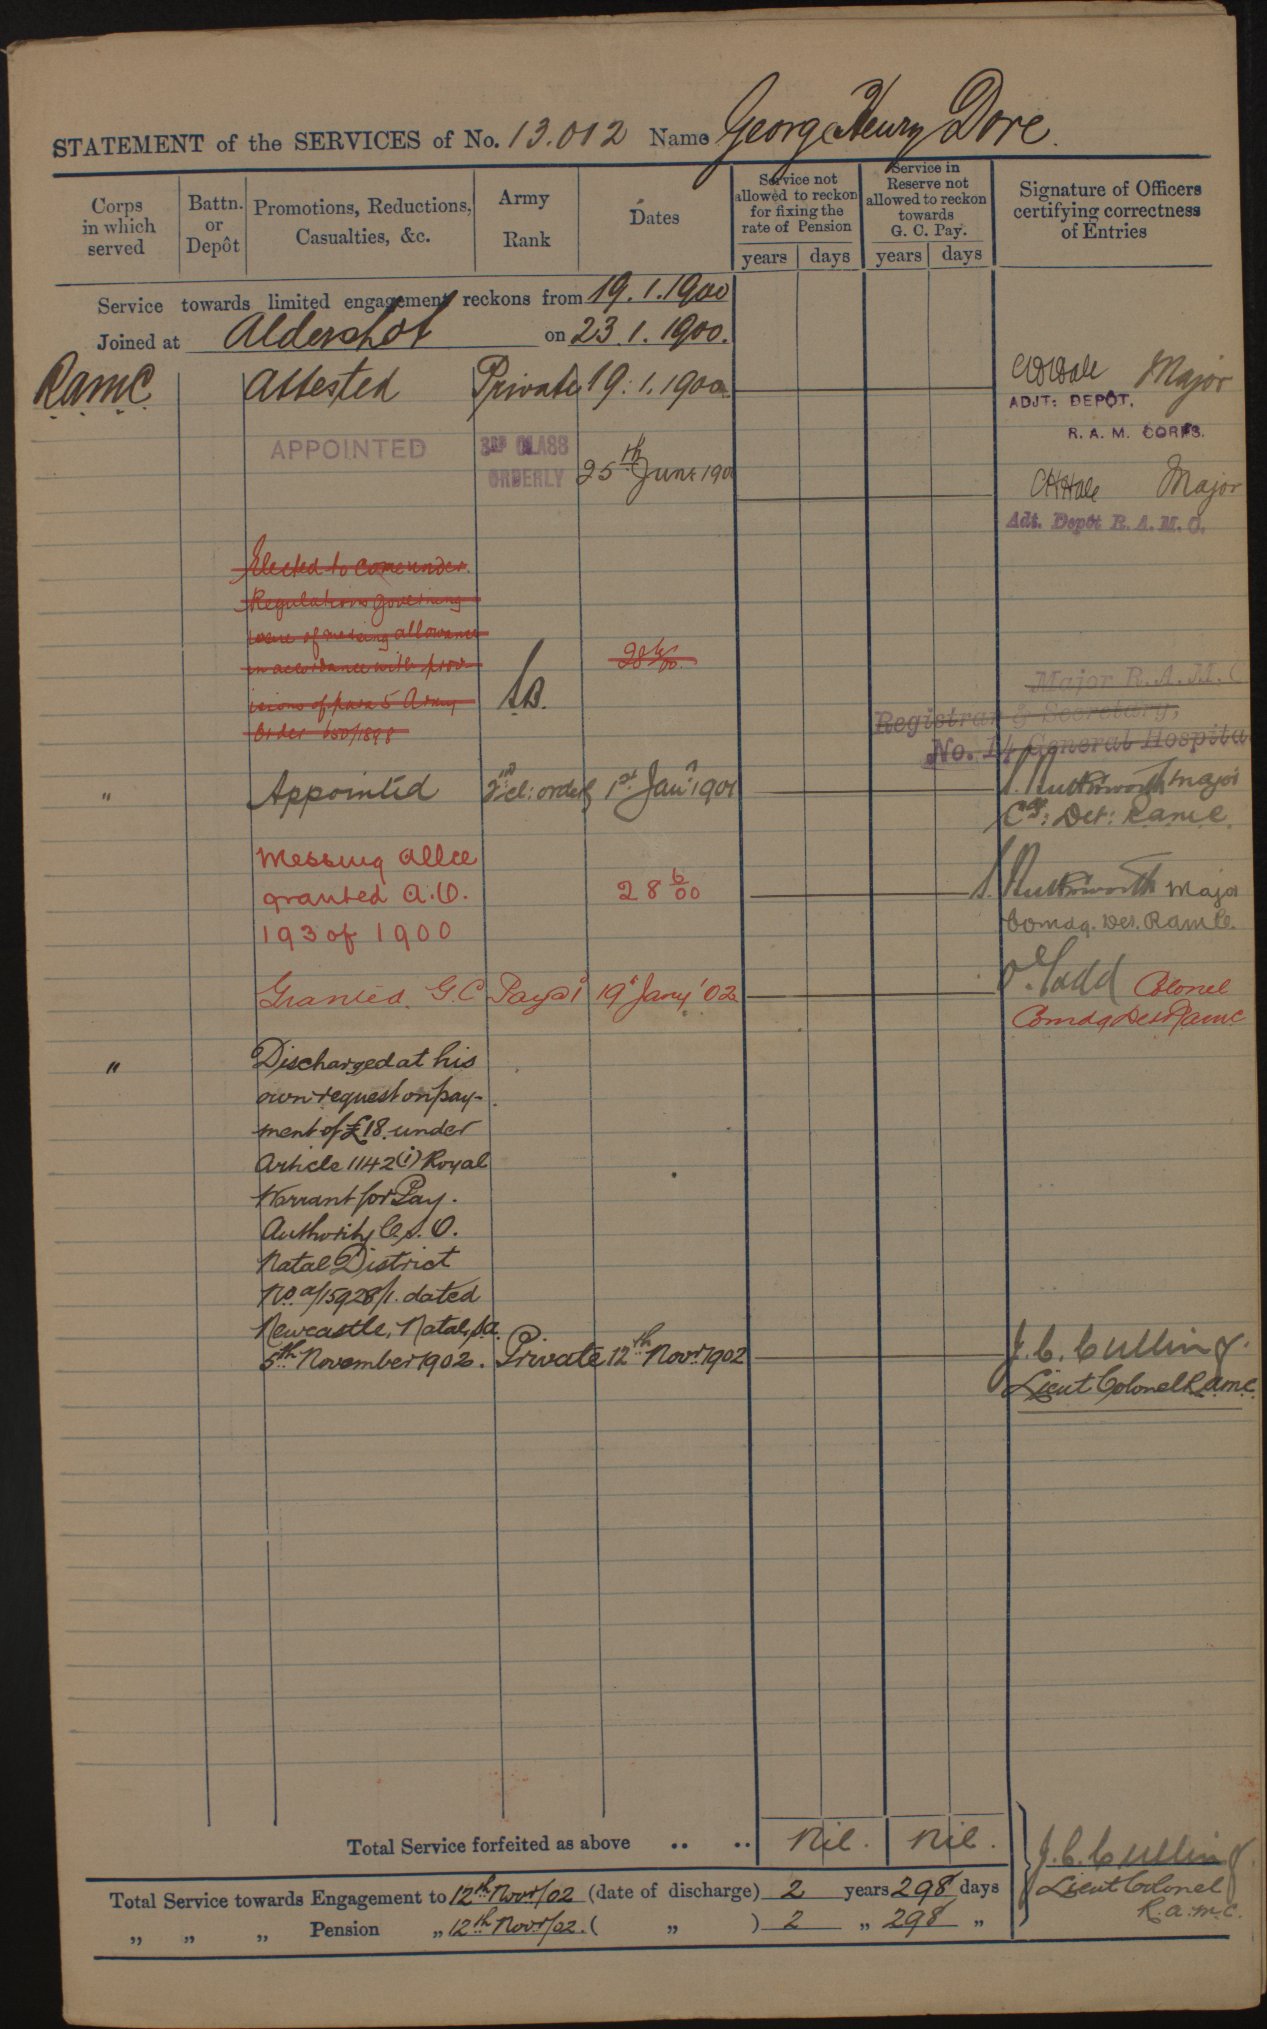 STATEMENT of the SERVICES of No. 13.012 Name George Henry Dore.
Corps in which served
Battn. or Depôt
Promotions, Reductions, Casualties, &c.
Army Rank
Dates
Service not allowed to reckon for fixing the rate of Pension
years days
Service in Reserve not allowed to reckon towards G. C. Pay.
years days
Signature of Officers certifying correctness of Entries
Service towards limited engagement reckons from 19.1.1900
Joined at Aldershot on 23.1.1900.
RAMC Attested Private 19.1.1900 Major
ADJT: DEPÔT,
R. A. M. CORPS.
APPOINTED 3RD CLASS
ORDERLY 25th June 190 Hale Major
Adt. Depôt R. A. M. C.
Elected to come under
Regulations governing
issue of messing allowance
in accordance with prov
isions of para 5 Army
Order 1898
28 6/00.
Major R.A.M.C
Registrar & Secretary,
No. 14 General Hospital
" Appointed 2nd cl: orderly 1st Jany 1901 Major
Det: RAMC
Messing allce
granted A.O. 28 6/00 Major
193 of 1900 Comdg. Det. RAMC.
Granted G.C Pay @ 19th Jany '02 Todd Colonel
Comdg Det RAMC
" Discharged at his
own request on pay-
ment of £18. under
Article 1142(i) Royal
Warrant for Pay.
Authority C.S.O.
Natal District
No. a/15928/1. dated
Newcastle, Natal, S.A.
5th November 1902. Private 12th Novr 1902 J. C. Culling.
Lieut Colonel R.a.m.c.
Total Service forfeited as above .. .. Nil. Nil.
J. C. Culling
Lieut Colonel
R.a.m.c.
Total Service towards Engagement to 12th Novr/02 (date of discharge) 2 years 298 days
„ „ „ Pension „ 12th Novr/02. ( „ ) 2 „ 298 „